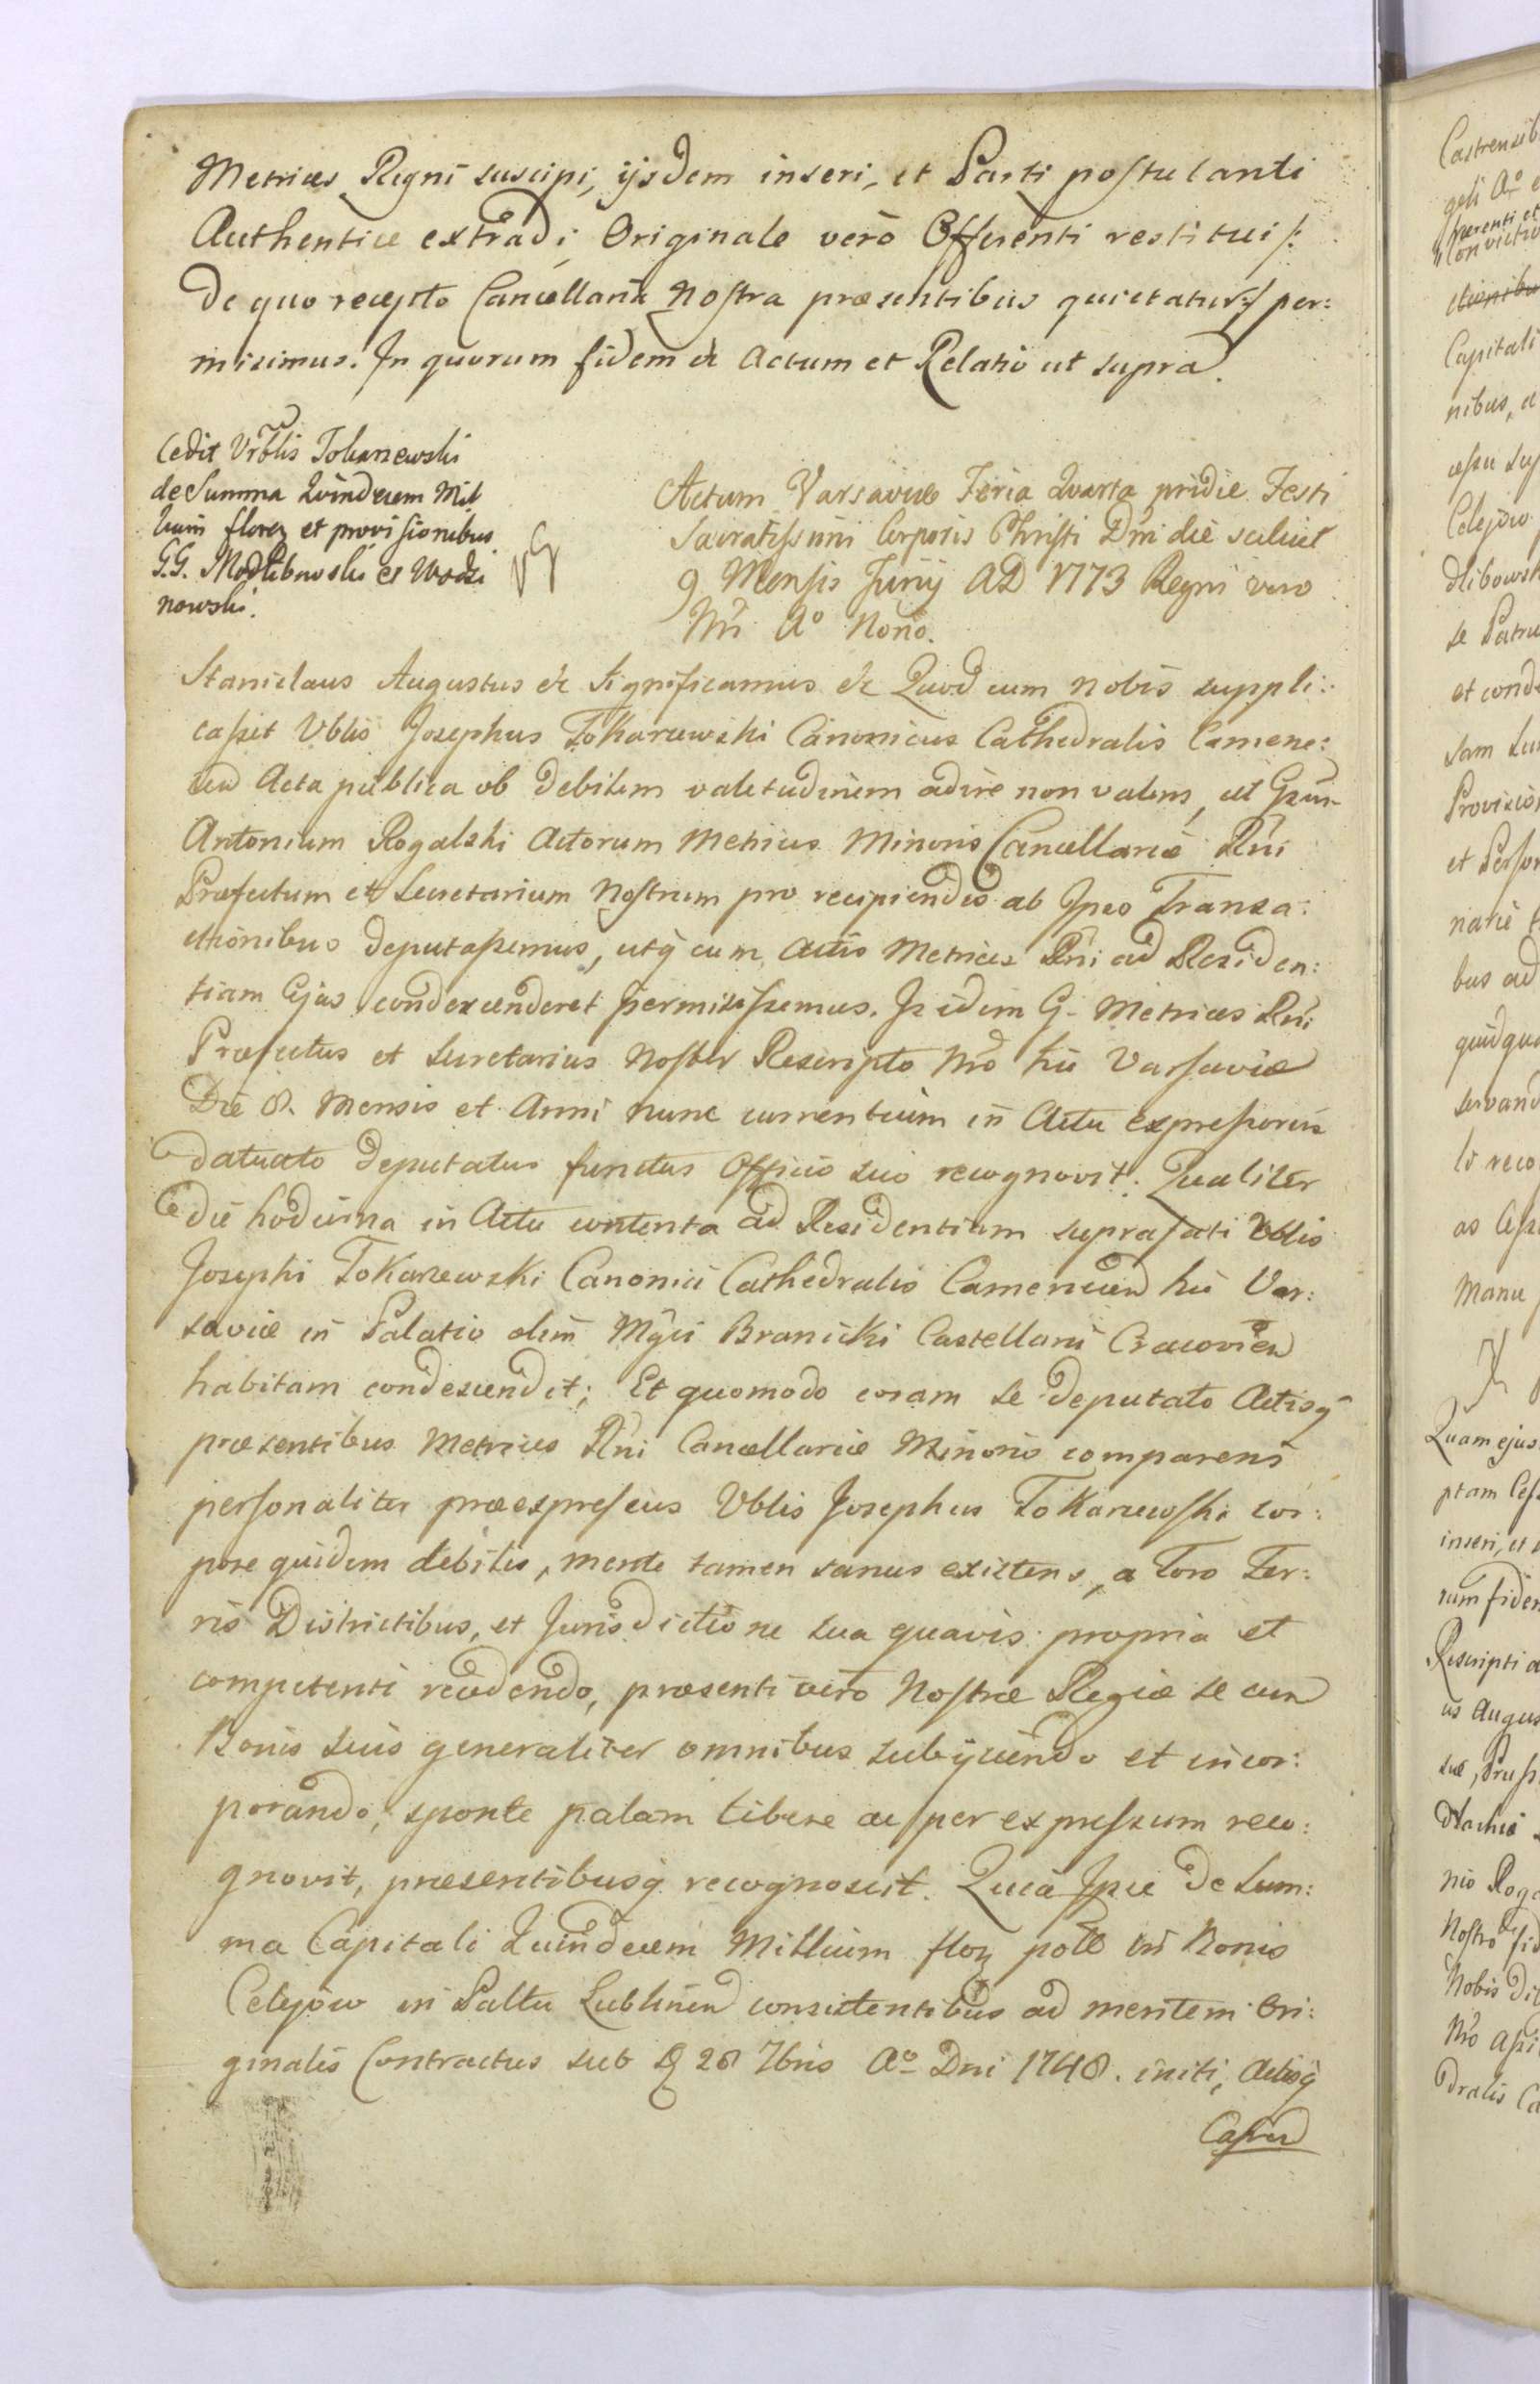 Metrices Regni suscipi, ijsdem inseri, et Parti postulanti
Authentice extradi, Originale verò Offerenti restitui /:
de quo recepto Cancellaria Nostra præsentibus quietatur :/ per:
misimus. In quorum fidem &c Actum et Relatio ut supra.
Cedit Vrblis Tokarzewski
de Summa Quindecem Mil
lium floren et provisionibus
G.G. Modlibowski et Wodzi
nowski.
Actum Varsaviæ Feria Quarta pridie Festi
Sacratissimi Corporis Christi Dni die scilicet
9 Mensis Junij AD 1773 Regni vero
Nri Aº Nono.
Stanislaus Augustus &c Significamus &c Quod cum nobis suppli:
casset Vblis Josephus Tokarzewski Canonicus Cathedralis Camene:
cen Acta publica ob debilem valetudinem adire non valens, ut Gsum
Antonium Rogalski Actorum Metrices Minoris Cancellariæ Rni
Præfectum et Secretarium Nostrum pro recipiendis ab Ipso Transa:
ctionibus deputassemus, utq cum Actis Metrices Rni ad Residen:
tiam Ejus condescenderet permisissemus. Is idem G. Metrices Rni
Præfectus et Secretarius Noster Rescripto Nro hic Varsaviæ
Die 8. Mensis et Anni nunc currentium in Actu expressorum
datuato deputatus functus Officio suo recognovit: Qualiter
die hodierna in Actu contenta ad Residentiam suprafati Vblis
Josephi Tokarzewski Canonici Cathedralis Camenecen hic Var:
saviæ in Palatio olim Mgci Branicki Castellani Cracovien
habitam condescendit; Et quomodo coram se deputato Actisq
præsentibus Metrices Rni Cancellariæ Minoris comparens
personaliter præexpressus Vblis Josephus Tokarzewski cor:
pore quidem debilis, mente tamen sanus existens, a Foro Ter:
ris Districtibus, et Jurisdictione sua quavis propria et
competenti recedendo, præsenti vero Nostræ Regiæ se cum
Bonis suis generaliter omnibus subijciendo et incor:
porando, sponte palam libere ac per expressum reco:
gnovit, præsentibusq recognoscit. Quia Ipse de Sum:
ma Capitali Quindecem Millium flor poll in Bonis
Celejow in Pallu Lublinen consistentibus ad mentem Ori:
ginalis Contractus sub D 28 7bris Aº Dni 1748. initi, Actisq
Castren